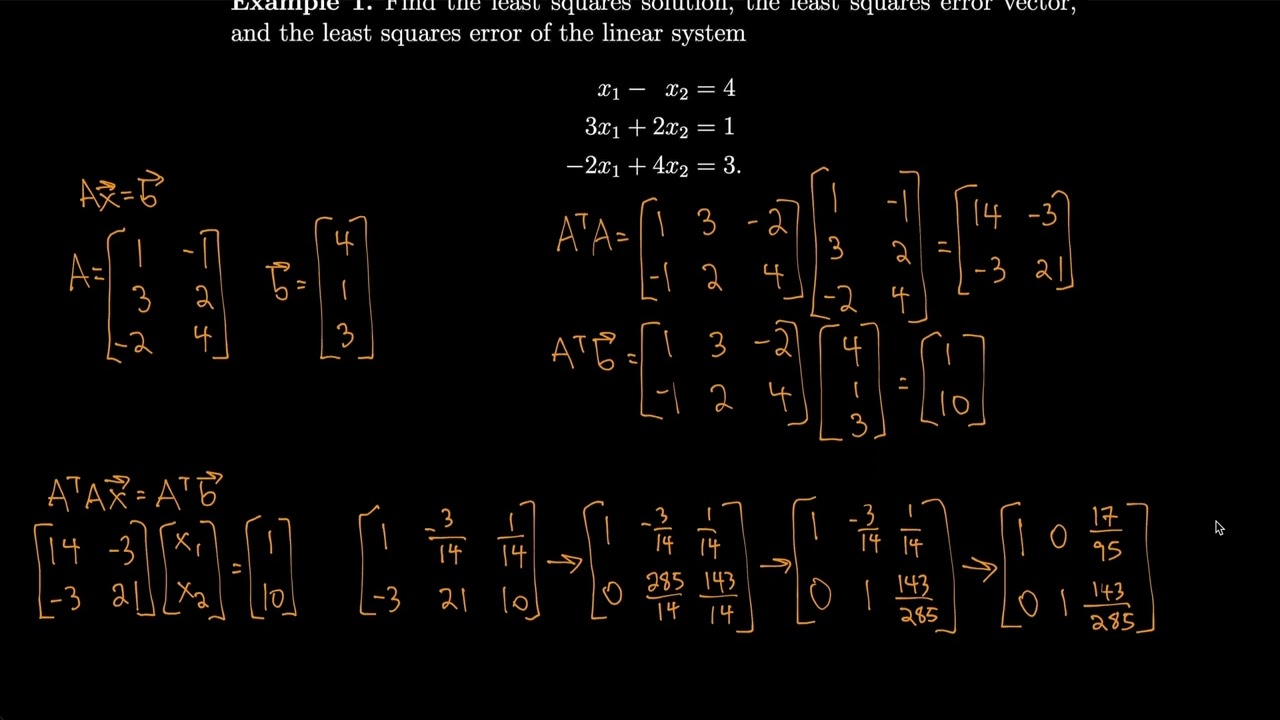 Example 1. Find the least squares solution, the least squares error vector,
and the least squares error of the linear system
x₁ − x₂ = 4
3x₁ + 2x₂ = 1
−2x₁ + 4x₂ = 3.
Ax⃗ = b⃗
A = [1 -1; 3 2; -2 4] b⃗ = [4; 1; 3]
AᵀA = [1 3 -2; -1 2 4] [1 -1; 3 2; -2 4] = [14 -3; -3 21]
Aᵀb⃗ = [1 3 -2; -1 2 4] [4; 1; 3] = [1; 10]
AᵀAx⃗ = Aᵀb⃗
[14 -3; -3 21] [x₁; x₂] = [1; 10] [1 -3/14 1/14; -3 21 10] → [1 -3/14 1/14; 0 285/14 143/14] → [1 -3/14 1/14; 0 1 143/285] → [1 0 17/95; 0 1 143/285]